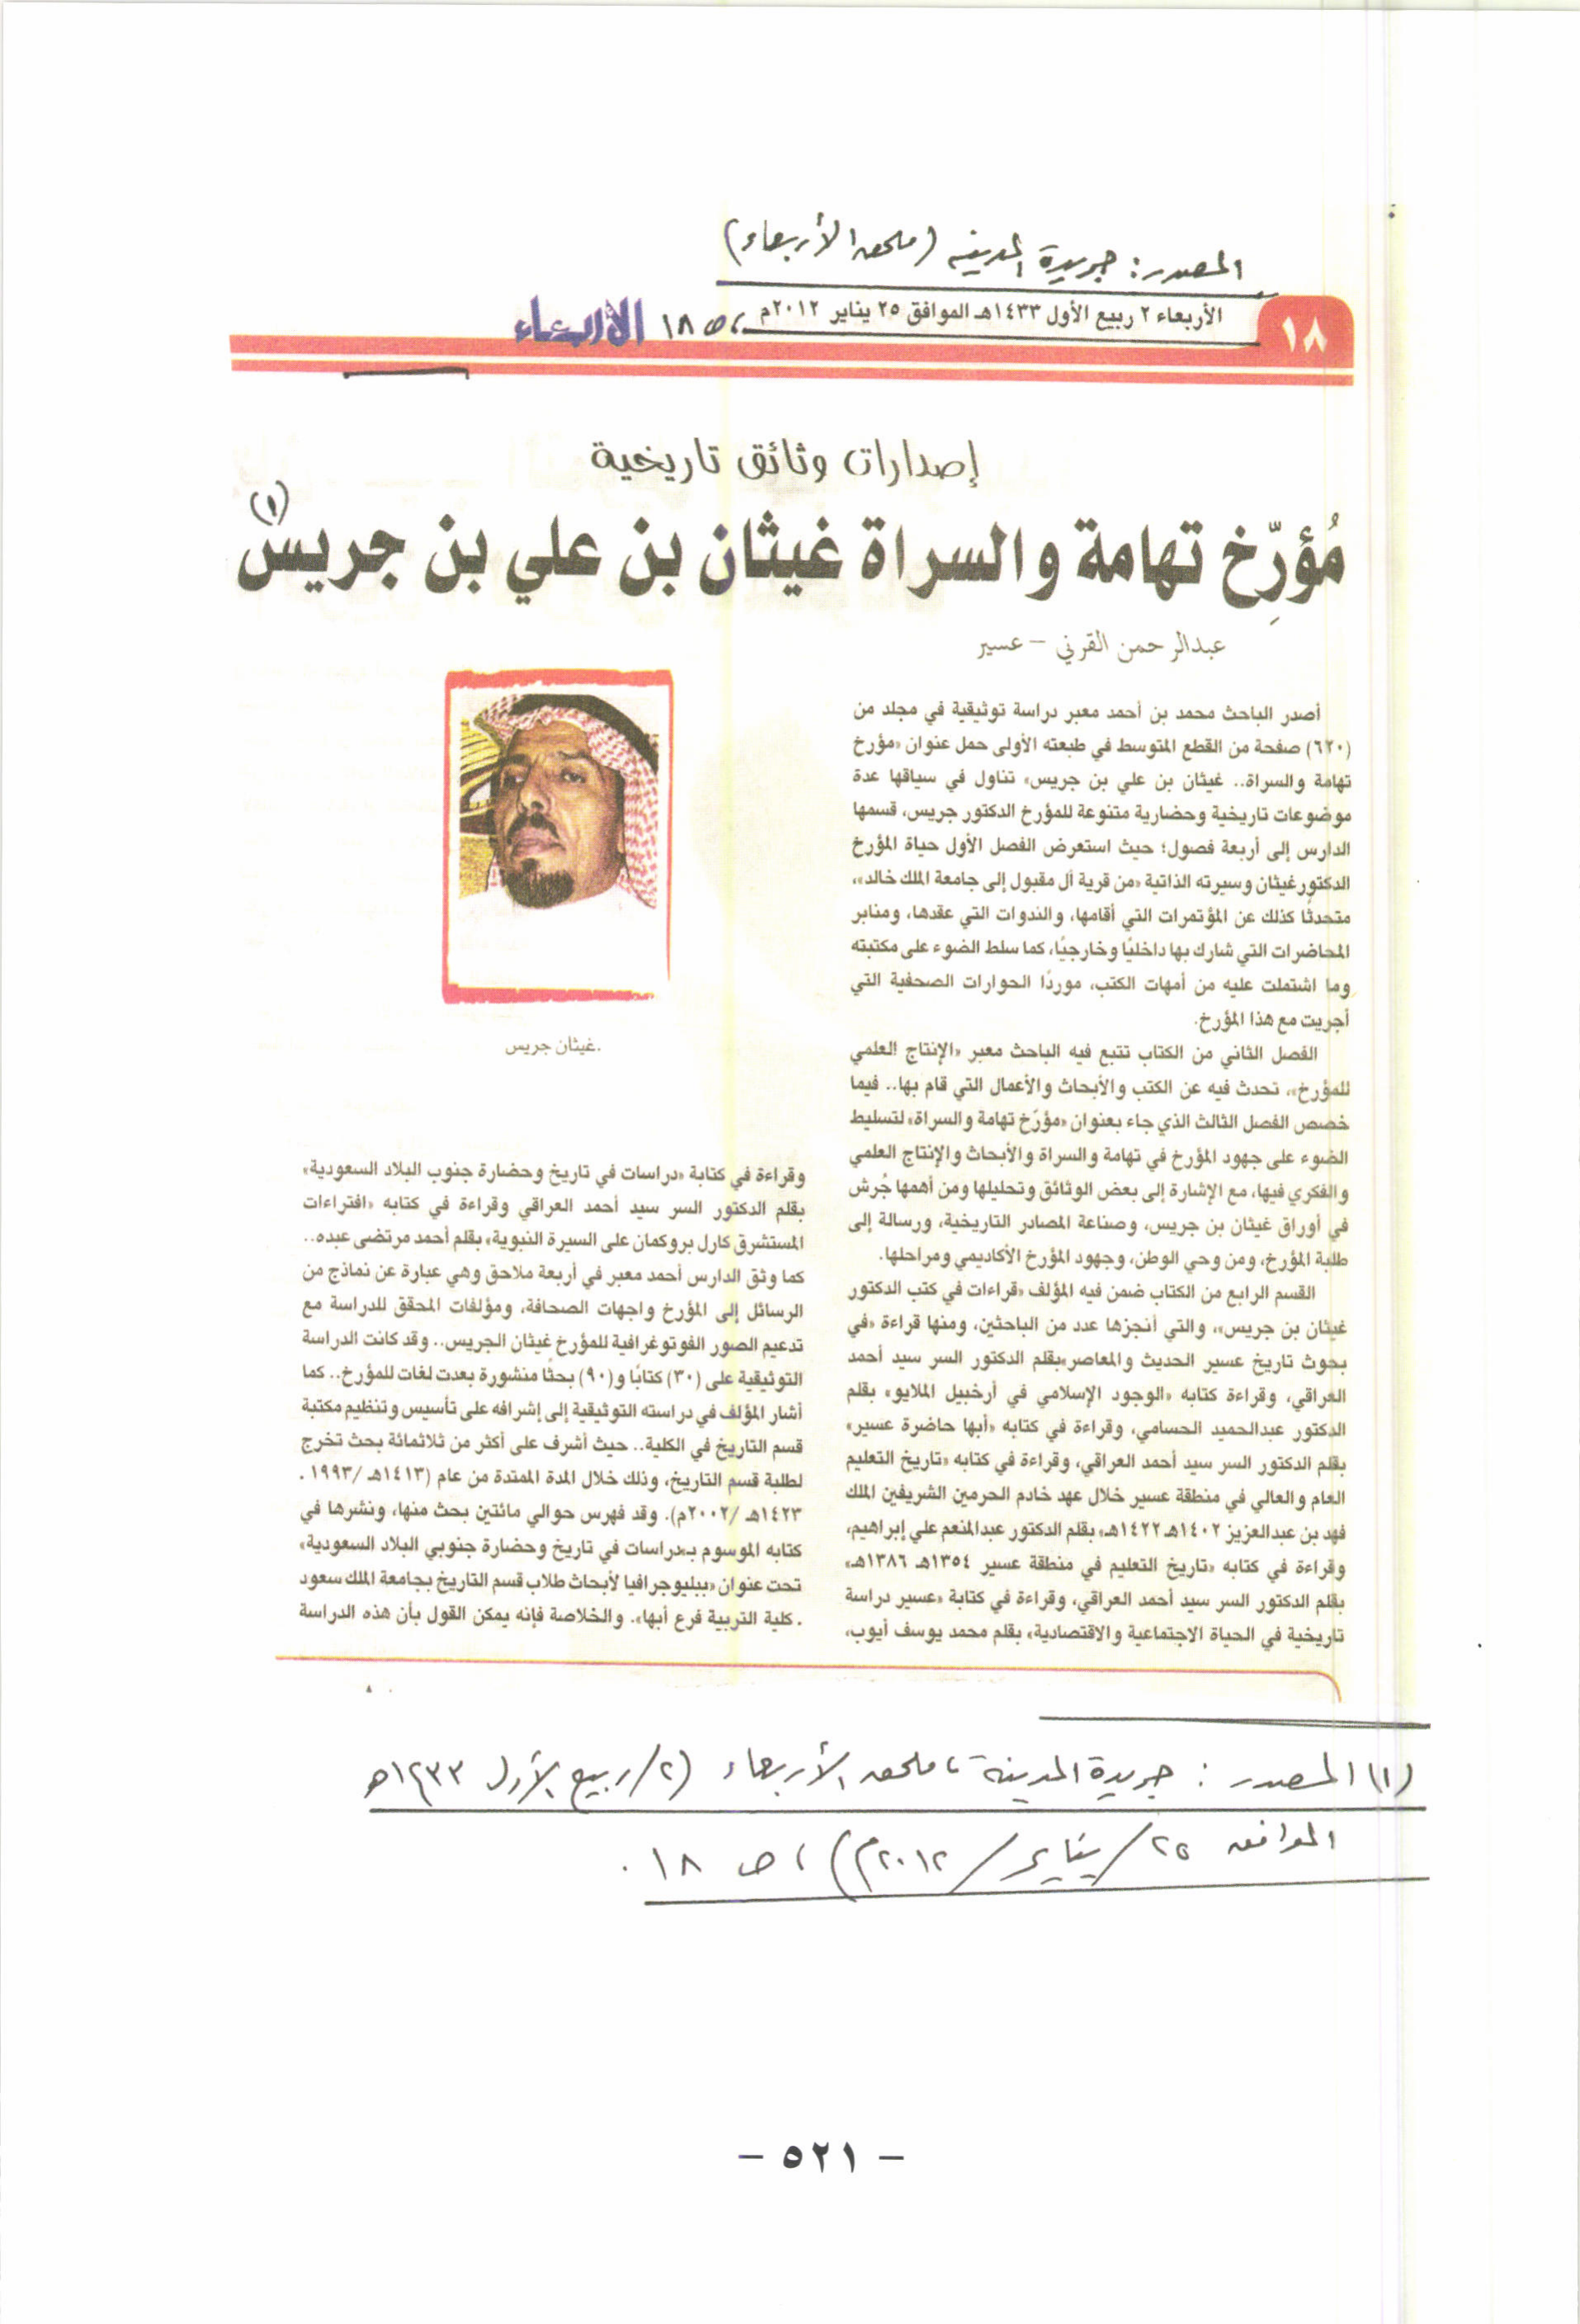 المصدر: جريدة المدينة (ملحق الأربعاء)
١٨
الأربعاء ٢ ربيع الأول ١٤٣٣هـ الموافق ٢٥ يناير ٢٠١٢م
، ص ١٨
الأربعاء
إصدارات وثائق تاريخية
مُؤرِّخ تهامة والسراة غيثان بن علي بن جريس (١)
عبدالرحمن القرني – عسير
أصدر الباحث محمد بن أحمد معبر دراسة توثيقية في مجلد من
(٦٢٠) صفحة من القطع المتوسط في طبعته الأولى حمل عنوان «مؤرخ
تهامة والسراة.. غيثان بن علي بن جريس» تناول في سياقها عدة
موضوعات تاريخية وحضارية متنوعة للمؤرخ الدكتور جريس، قسمها
الدارس إلى أربعة فصول؛ حيث استعرض الفصل الأول حياة المؤرخ
الدكتور غيثان وسيرته الذاتية «من قرية آل مقبول إلى جامعة الملك خالد»،
متحدثًا كذلك عن المؤتمرات التي أقامها، والندوات التي عقدها، ومنابر
المحاضرات التي شارك بها داخليًا وخارجيًا، كما سلط الضوء على مكتبته
وما اشتملت عليه من أمهات الكتب، موردًا الحوارات الصحفية التي
أجريت مع هذا المؤرخ.
الفصل الثاني من الكتاب تتبع فيه الباحث معبر «الإنتاج العلمي
للمؤرخ»، تحدث فيه عن الكتب والأبحاث والأعمال التي قام بها.. فيما
خصص الفصل الثالث الذي جاء بعنوان «مؤرّخ تهامة والسراة» لتسليط
الضوء على جهود المؤرخ في تهامة والسراة والأبحاث والإنتاج العلمي
والفكري فيها، مع الإشارة إلى بعض الوثائق وتحليلها ومن أهمها جُرش
في أوراق غيثان بن جريس، وصناعة المصادر التاريخية، ورسالة إلى
طلبة المؤرخ، ومن وحي الوطن، وجهود المؤرخ الأكاديمي ومراحلها.
القسم الرابع من الكتاب ضمن فيه المؤلف «قراءات في كتب الدكتور
غيثان بن جريس»، والتي أنجزها عدد من الباحثين، ومنها قراءة «في
بحوث تاريخ عسير الحديث والمعاصر» بقلم الدكتور السر سيد أحمد
العراقي، وقراءة كتابه «الوجود الإسلامي في أرخبيل الملايو» بقلم
الدكتور عبدالحميد الحسامي، وقراءة في كتابه «أبها حاضرة عسير»
بقلم الدكتور السر سيد أحمد العراقي، وقراءة في كتابه «تاريخ التعليم
العام والعالي في منطقة عسير خلال عهد خادم الحرمين الشريفين الملك
فهد بن عبدالعزيز ١٤٠٢هـ ١٤٢٢هـ» بقلم الدكتور عبدالمنعم علي إبراهيم،
وقراءة في كتابه «تاريخ التعليم في منطقة عسير ١٣٥٤هـ ١٣٨٦هـ»
بقلم الدكتور السر سيد أحمد العراقي، وقراءة في كتابة «عسير دراسة
تاريخية في الحياة الاجتماعية والاقتصادية» بقلم محمد يوسف أيوب،
.غيثان جريس
وقراءة في كتابة «دراسات في تاريخ وحضارة جنوب البلاد السعودية»
بقلم الدكتور السر سيد أحمد العراقي وقراءة في كتابه «افتراءات
المستشرق كارل بروكمان على السيرة النبوية» بقلم أحمد مرتضى عبده..
كما وثق الدارس أحمد معبر في أربعة ملاحق وهي عبارة عن نماذج من
الرسائل إلى المؤرخ واجهات الصحافة، ومؤلفات المحقق للدراسة مع
تدعيم الصور الفوتوغرافية للمؤرخ غيثان الجريس.. وقد كانت الدراسة
التوثيقية على (٣٠) كتابًا و(٩٠) بحثًا منشورة بعدت لغات للمؤرخ.. كما
أشار المؤلف في دراسته التوثيقية إلى إشرافه على تأسيس وتنظيم مكتبة
قسم التاريخ في الكلية.. حيث أشرف على أكثر من ثلاثمائة بحث تخرج
لطلبة قسم التاريخ، وذلك خلال المدة الممتدة من عام (١٤١٣هـ /١٩٩٣ .
١٤٢٣هـ /٢٠٠٢م). وقد فهرس حوالي مائتين بحث منها، ونشرها في
كتابه الموسوم بـ«دراسات في تاريخ وحضارة جنوبي البلاد السعودية»
تحت عنوان «ببليوجرافيا لأبحاث طلاب قسم التاريخ بجامعة الملك سعود
. كلية التربية فرع أبها». والخلاصة فإنه يمكن القول بأن هذه الدراسة
(١) المصدر : جريدة المدينة ، ملحق الأربعاء (٢/ربيع الأول ١٤٣٣هـ
الموافق ٢٥/يناير/٢٠١٢م) ، ص ١٨ .
– ٥٢١ –